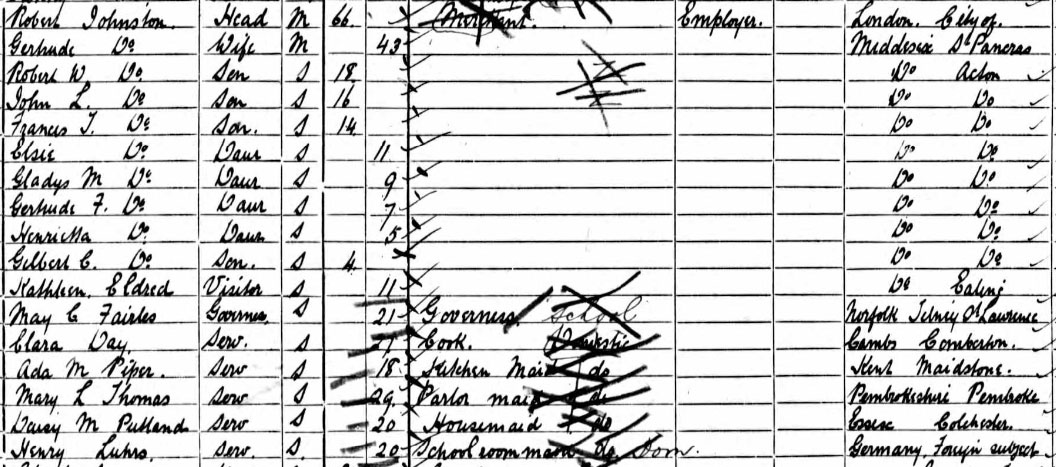 Robert Johnston. Head M 66. Merchant. Employer. London. City of.
Gertrude Do Wife M 43 Middlesex St Pancras
Robert W. Do Son S 18 Do Acton
John L. Do Son S 16 Do Do
Francis T. Do Son. S 14 Do Do
Elsie Do Daur S 11 Do Do
Gladys M Do Daur S 9 Do Do
Gertrude F. Do Daur S 7 Do Do
Henrietta Do Daur S 5 Do Do
Gilbert C. Do Son. S 4. Do Do
Kathleen Eldred Visitor S 11 Do Ealing
May C Fairles Governess S 21 Governess School Norfolk St Lawrence
Clara Day. Serv. S Cook. Domestic Cambs Comberton.
Ada M Piper. Serv S 18 Kitchen Maid do Kent Maidstone.
Mary L Thomas Serv S 29 Parlor maid do Pembrokeshire Pembroke
Daisy M Putland Serv S 20 Housemaid do Essex Colchester.
Henry Luhrs. Serv. S. 20 School room maid do Dom. Germany, Foreign subject